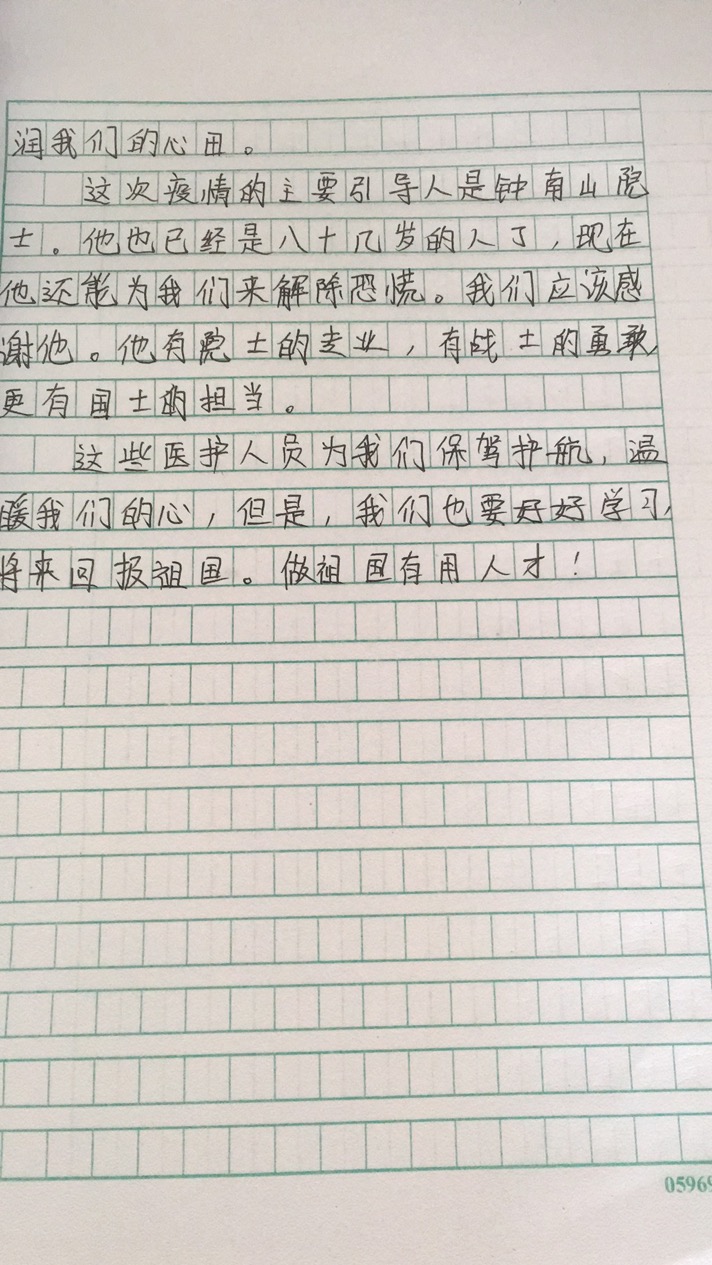 润我们的心田。
这次疫情的主要引导人是钟南山院
士。他也已经是八十几岁的人了，现在
他还能为我们来解除恐慌。我们应该感
谢他。他有院士的专业，有战士的勇敢
更有国士的担当。
这些医护人员为我们保驾护航，温
暖我们的心，但是，我们也要好好学习，
将来回报祖国。做祖国有用人才！
05969